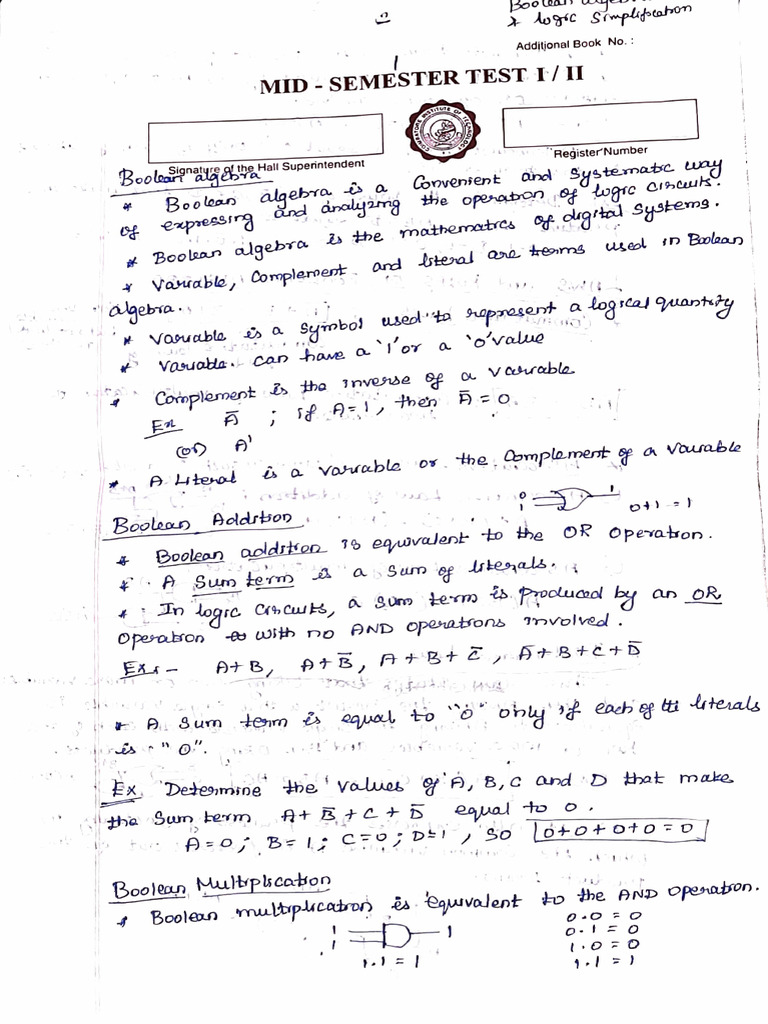 Boolean algebra
* logic simplification
Additional Book No. :
MID - SEMESTER TEST I / II
COIMBATORE INSTITUTE OF TECHNOLOGY
Signature of the Hall Superintendent
Register Number
Boolean algebra
* Boolean algebra is a Convenient and Systematic way
of expressing and analyzing the operation of logic circuits.
* Boolean algebra is the mathematics of digital systems.
* Variable, Complement and literal are terms used in Boolean
algebra.
* Variable is a symbol used to represent a logical quantity
* Variable can have a '1' or a '0' value
* Complement is the inverse of a variable
Ex A̅ ; if A=1, then A̅ = 0.
(or) A'
* A Literal is a variable or the Complement of a variable
0
1
1
0+1 = 1
Boolean Addition
* Boolean addition is equivalent to the OR operation.
* A Sum term is a sum of literals.
* In logic circuits, a sum term is produced by an OR
operation with no AND operations involved.
Ex:- A+B, A+B̅, A+B+C̅, A̅+B+C+D̅
* A Sum term is equal to "0" only if each of the literals
is "0".
Ex Determine the values of A, B, C and D that make
the Sum term A+B̅+C+D̅ equal to 0.
A=0; B=1; C=0; D=1, so 0+0+0+0=0
Boolean Multiplication
* Boolean multiplication is equivalent to the AND operation.
1
1
1
1.1 = 1
0.0 = 0
0.1 = 0
1.0 = 0
1.1 = 1